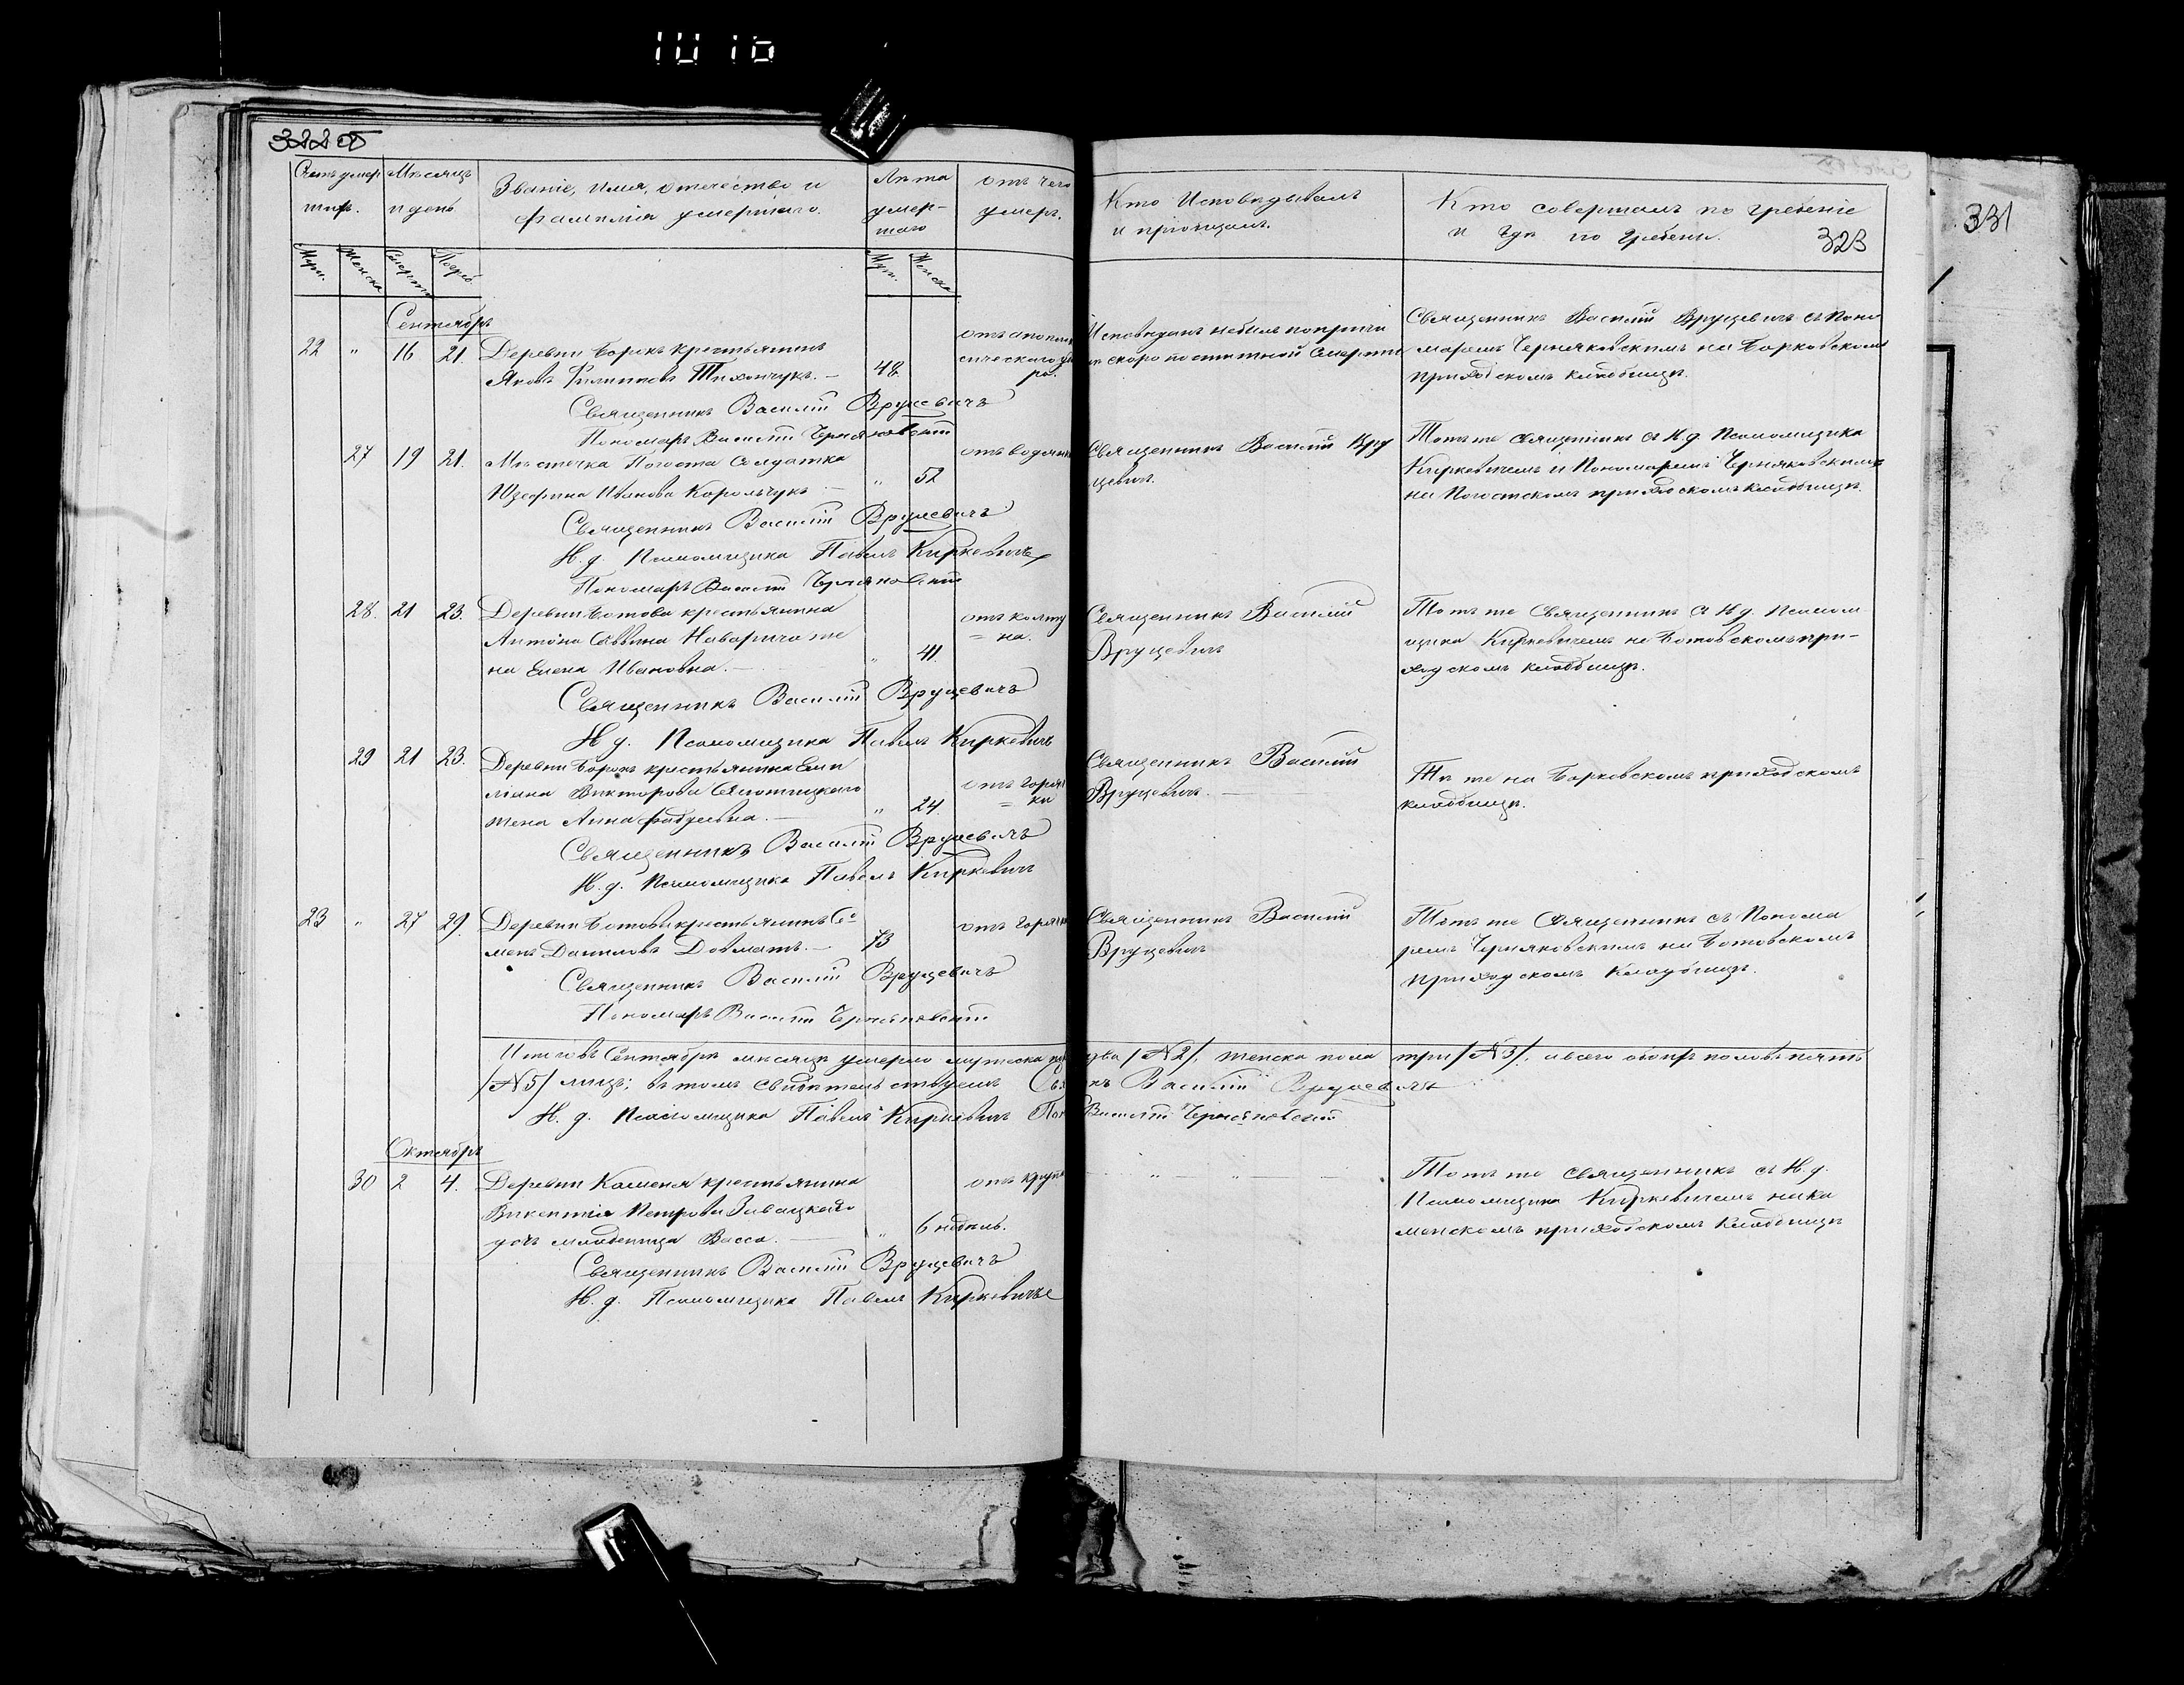 322 об
331
Счетъ умер
шихъ.
Мѣсяцъ
и день
Званіе, имя, отечество и
фамилія умершаго.
Лѣта
умер-
шаго
отъ чего
умеръ.
Кто Исповѣдывалъ
и пріобщалъ.
Кто совершалъ погребеніе
и гдѣ погребены.
323
Муж.
Женска
Смерти
Погреб.
Муж.
Женска
Сентябрь
22 " 16 21. Деревни Борокъ крестьянинъ
Яковъ Филиповъ Тихончукъ. — 48
Священникъ Василій Вруцевичъ
Пономарь Василій Черняковскій
Исповѣданъ небылъ по причи
скоропостижной смерти
Священникъ Василій Вруцевичъ съ Поно
маремъ Черняковскимъ на Борковскомъ
приходскомъ кладбищѣ.
27 19 21. Мѣстечка Погоста Солдатка
Юзефина Иванова Корольчукъ — " 52
Священникъ Василій Вруцевичъ
И. д. Псаломщика Павелъ Киркевичъ
Пономарь Василій Черняковскій
отъ водянки
Священникъ Василій Вру
цевичъ.
Тотъ же Священникъ съ И. д. Псаломщика
Киркевичемъ и Пономаремъ Черняковскимъ
на Погостскомъ приходскомъ кладбищѣ.
28. 21 23. Деревни Ботова крестьянина
Антона Саввина Наварича же
на Елена Ивановна. — " 41.
Священникъ Василій Вруцевичъ
И д. Псаломщика Павелъ Киркевичъ
отъ колту
= на.
Священникъ Василій
Вруцевичъ
Тотъ же Священникъ съ И д. Псалом
щика Киркевичемъ на Ботовскомъ при-
ходскомъ кладбищѣ.
29 21 23. Деревни Борокъ крестьянина Еми
ліана Викторова
жена Анна — " 24
Священникъ Василій Вруцевичъ
И. д. Псаломщика Павелъ Киркевичъ
отъ горяч
= ки
Священникъ Василій
Вруцевичъ. —
Тѣ же на Борковскомъ приходскомъ
кладбищѣ.
23 " 27 29. Деревни Ботова крестьянинъ Се
менъ Даниловъ Довматъ. — 73
Священникъ Василій Вруцевичъ
Пономарь Василій Черняковскій
отъ горячк
Священникъ Василій
Вруцевичъ
Тотъ же Священникъ съ Понома
ремъ Черняковскимъ на Ботовскомъ
приходскомъ кладбищѣ.
Итого въ Сентябрѣ мѣсяцѣ умерло мужеска пола два /N2/, женска пола три /N3/, а всего обоихъ половъ пять
/N5/ лицъ; въ томъ свидѣтельствуемъ Свя къ Василій Вруцевичъ
И. д. Псаломщика Павелъ Киркевичъ Пон Василій Черняковскій
Октябрь
30 2 4. Деревни Каменя крестьянина
Викентія Петрова
дочь младеница Васса. — " 6 недѣль.
Священникъ Василій Вруцевичъ
И. д. Псаломщика Павелъ Киркевичъ
отъ крупа
— " — " — —
Тотъ же Священникъ съ И. д.
Псаломщика Киркевичемъ на Ка
менскомъ приходскомъ кладбищѣ